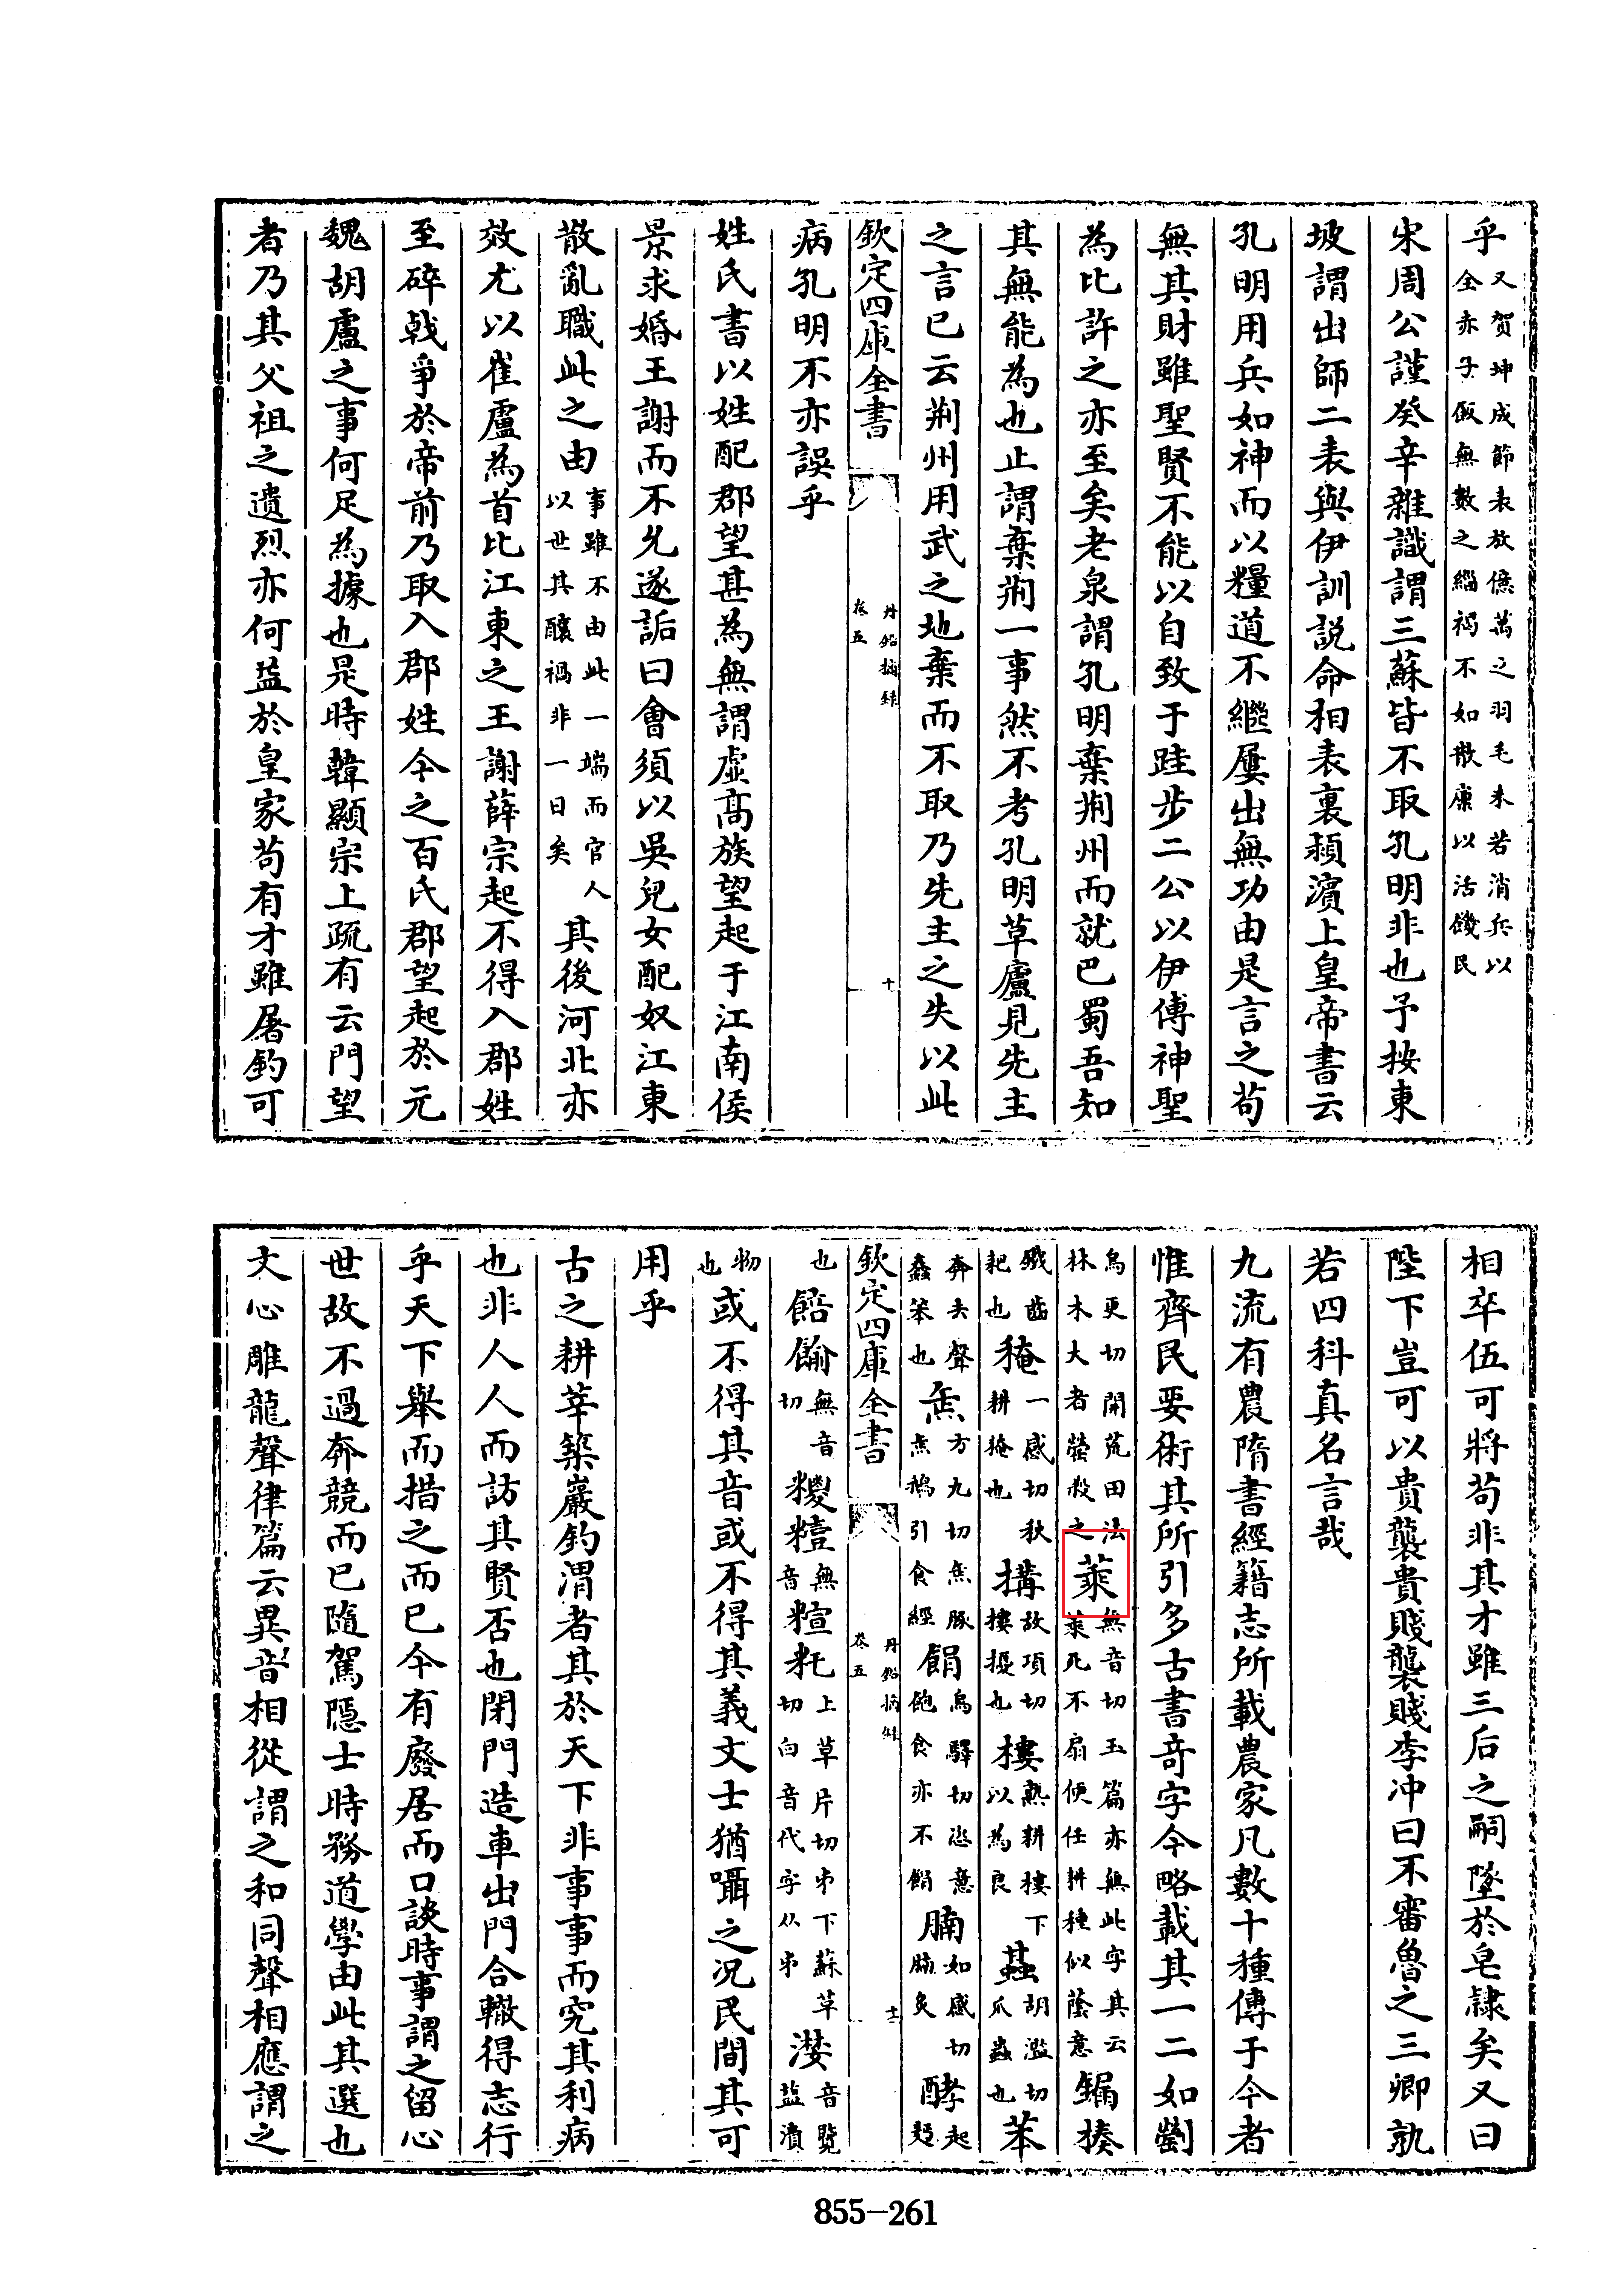 乎又賀坤成節表放億萬之羽毛未若消兵以全赤子飯無數之緇褐不如散廩以活饑民
宋周公謹癸辛雜識謂三蘇皆不取孔明非也予按東
坡謂出師二表與伊訓説命相表裏潁濱上皇帝書云
孔明用兵如神而以糧道不繼屢出無功由是言之茍
無其財雖聖賢不能以自致于跬步二公以伊傅神聖
為比許之亦至矣老泉謂孔明棄荆州而就巴蜀吾知
其無能為也止謂棄荆一事然不考孔明草廬見先主
之言已云荆州用武之地棄而不取乃先主之失以此
欽定四庫全書 丹鉛摘録 卷五 十
病孔明不亦誤乎
姓氏書以姓配郡望甚為無謂虛髙族望起于江南侯
景求婚王謝而不允遂詬曰會須以吳兒女配奴江東
散亂職此之由事雖不由此一端而官人以世其釀禍非一日矣其後河北亦
效尤以崔盧為首比江東之王謝薛宗起不得入郡姓
至碎戟爭於帝前乃取入郡姓今之百氏郡望起於元
魏胡盧之事何足為據也是時韓顯宗上疏有云門望
者乃其父祖之遺烈亦何益於皇家茍有才雖屠釣可
相卒伍可將茍非其才雖三后之嗣墜於皂隸矣又曰
陛下豈可以貴襲貴賤襲賤李冲曰不審魯之三卿孰
若四科真名言哉
九流有農隋書經籍志所載農家凡數十種傳于今者
惟齊民要術其所引多古書奇字今略載其一二如㓾
烏更切開荒田法林木大者殺之無音切玉篇亦無此字其云死不扇便任耕種似蔭意楱
鐵齒耙也䅖一感切秋耕䅖也耩故項切耩耰也耬熟耕耬下以為良䖵胡濫切瓜蟲也笨
奔去聲麤笨也缹方九切缹豚缹鵝引食經䬼烏縣切恣意飽食亦不䬼腩如感切腩炙酵起麪
欽定四庫全書 丹鉛摘録 卷五 十一
也餢䬳無音切糉䊦無音粰上草片切下蘇草切白音代字从
物也或不得其音或不得其義文士猶囁之况民間其可
用乎
古之耕莘築巖釣渭者其於天下非事事而究其利病
也非人人而訪其賢否也閉門造車出門合轍得志行
乎天下舉而措之而已今有廢居而口談時事謂之留心
世故不過奔競而已隨駕隱士時務道學由此其選也
文心雕龍聲律篇云異音相從謂之和同聲相應謂之
855-261